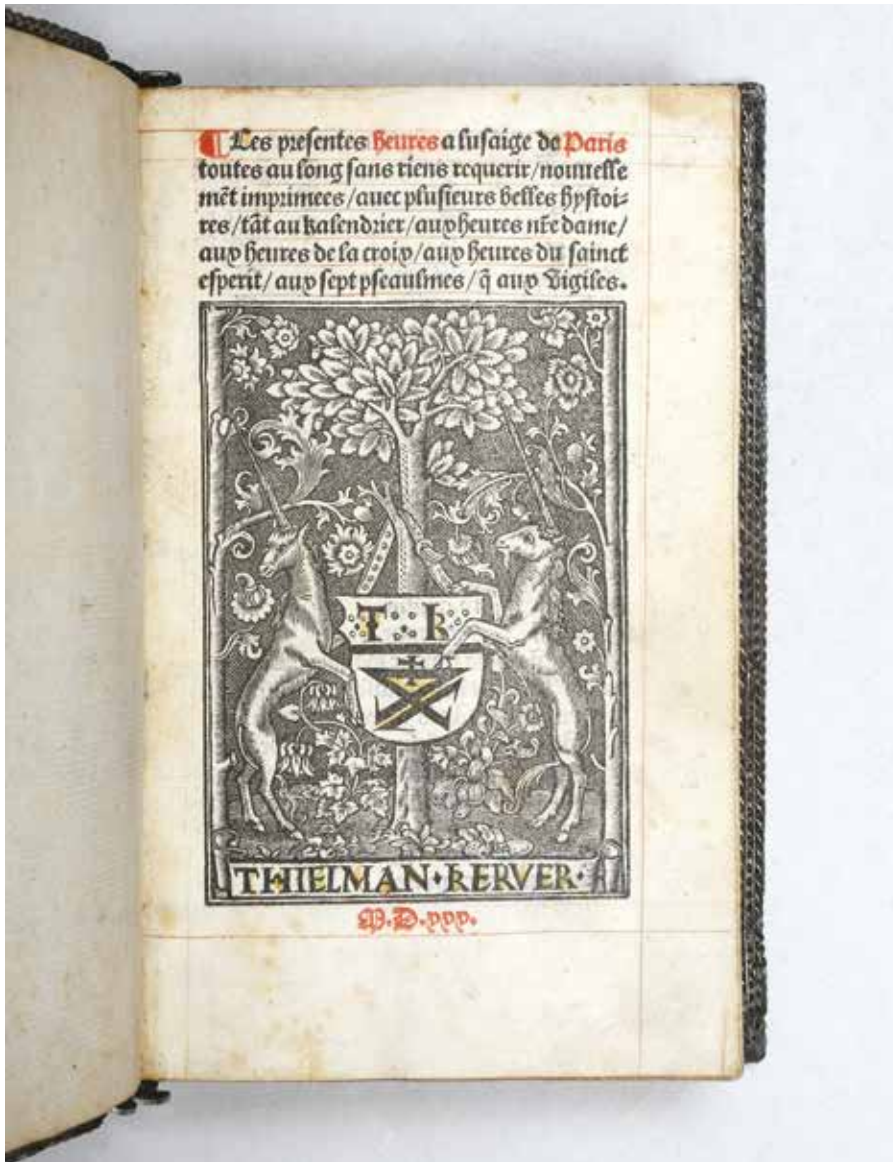 ¶ Les presentes heures a lusaige de Paris
toutes au long sans riens requerir/nouuelle
mẽt imprimees/auec plusieurs belles hystoi=
res/tãt au kalendrier/aux heures nr̃e dame/
aux heures de la croix/aux heures du sainct
esperit/aux sept pseaulmes/q̃ aux Vigiles.
T R
THIELMAN·KERVER·
M.D.xxx.